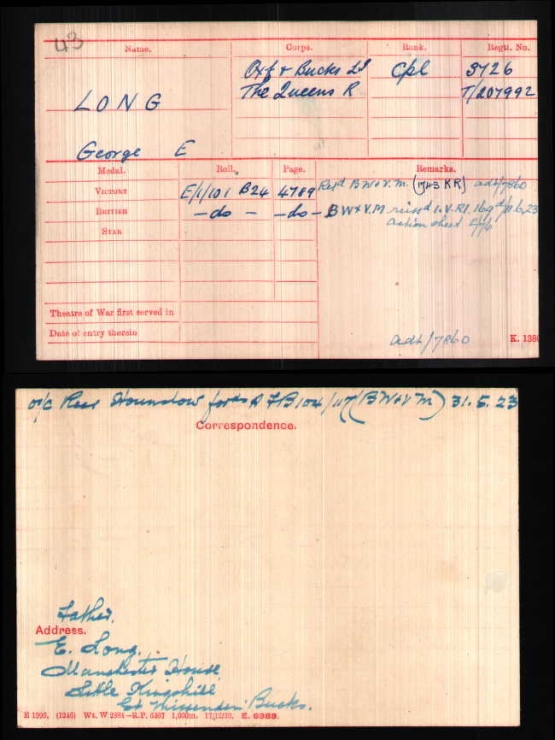 43
Name. Corps. Rank. Regtl. No.
Oxf & Bucks LI Cpl 5726
LONG The Queens R T/207992
George E
Medal. Roll. Page. Remarks.
VICTORY E/1/101 B24 4789 Retd BW&V.M. (1743 KR) adt/7860
BRITISH -do- -do- BW&V.M reissd
STAR action sheet
Theatre of War first served in
Date of entry therein
adt/7860 K. 1380
o/c Rec Hounslow forwds (BW&V M) 31.5.23
Correspondence.
Father.
Address.
E. Long.
Manchester House
Little Kingshill
Gt Missenden Bucks.
E 1999. (1246) Wt. W 2884—R.P. 6367 1,000m. E. 6989.